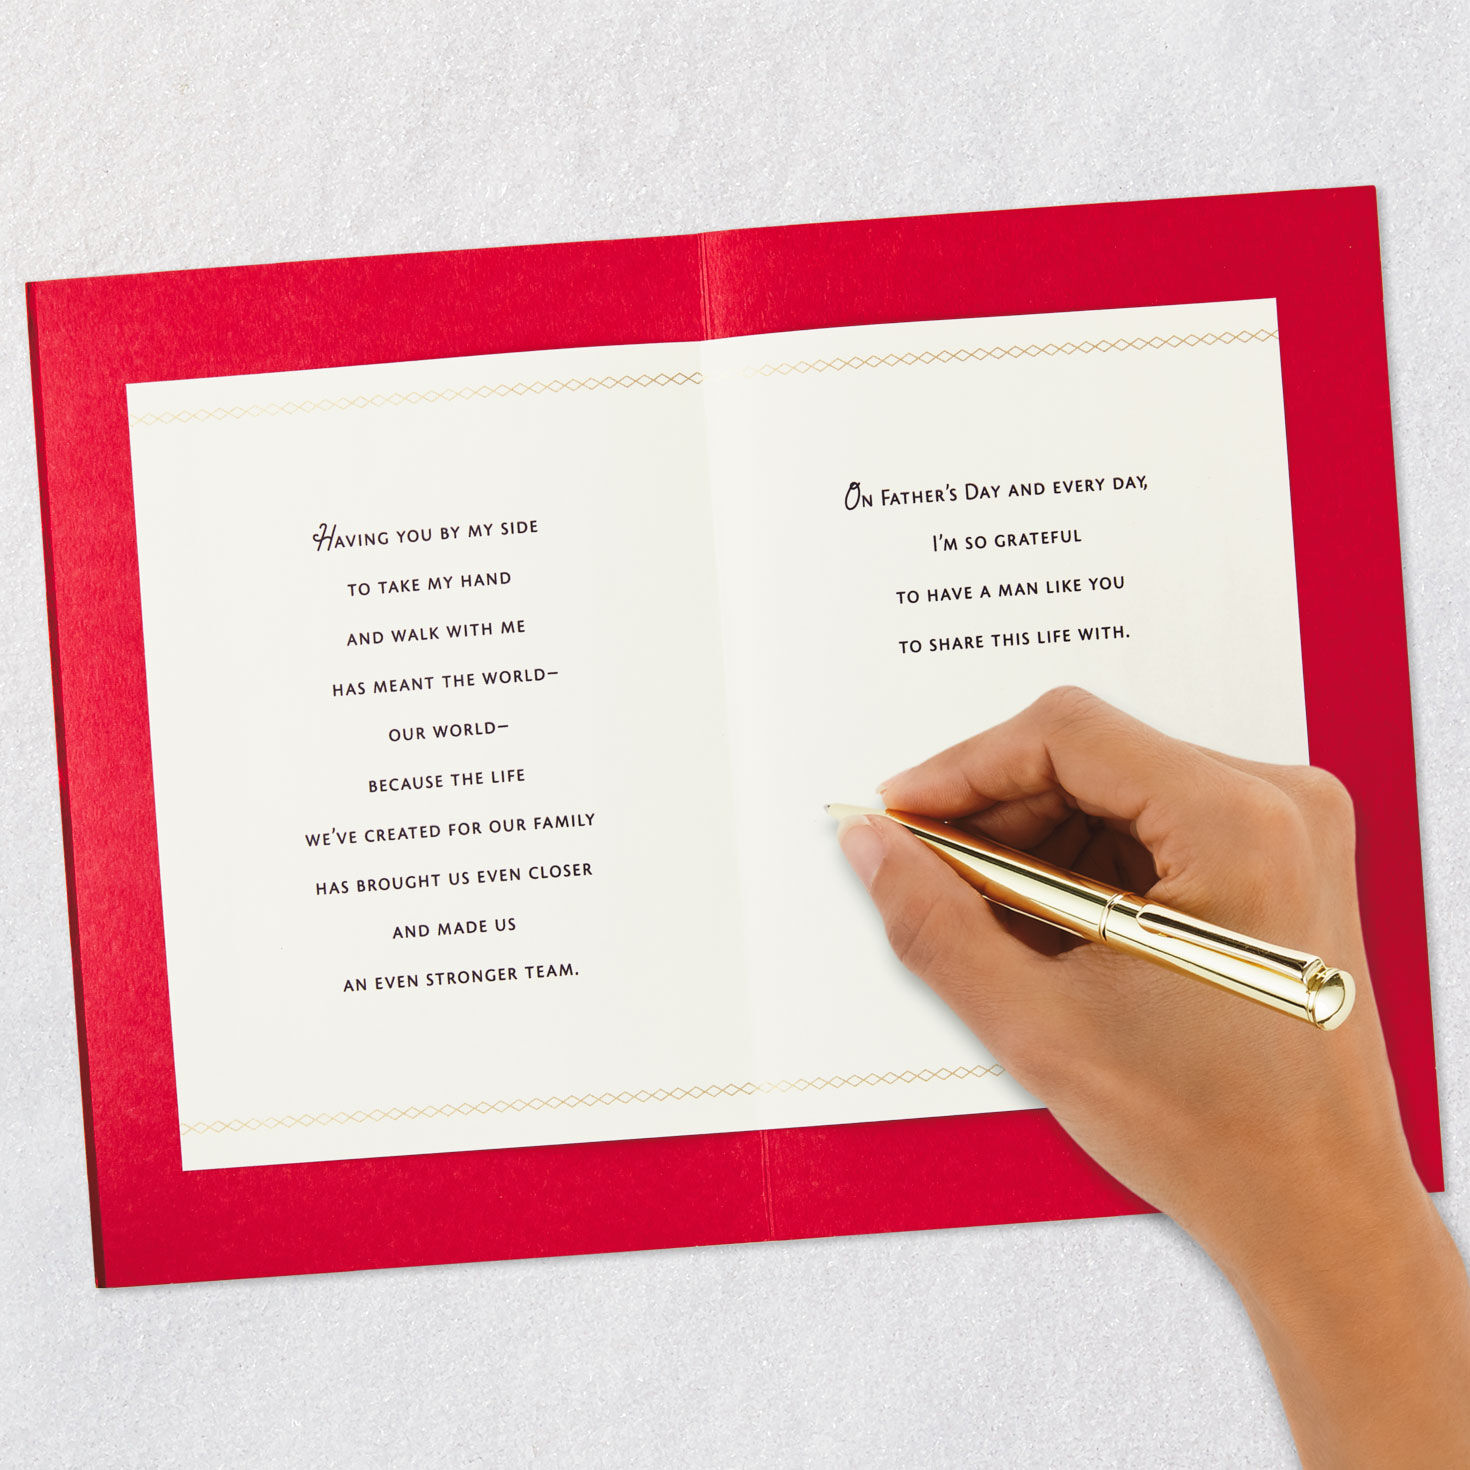 Having you by my side
to take my hand
and walk with me
has meant the world—
our world—
because the life
we've created for our family
has brought us even closer
and made us
an even stronger team.
On Father's Day and every day,
I'm so grateful
to have a man like you
to share this life with.